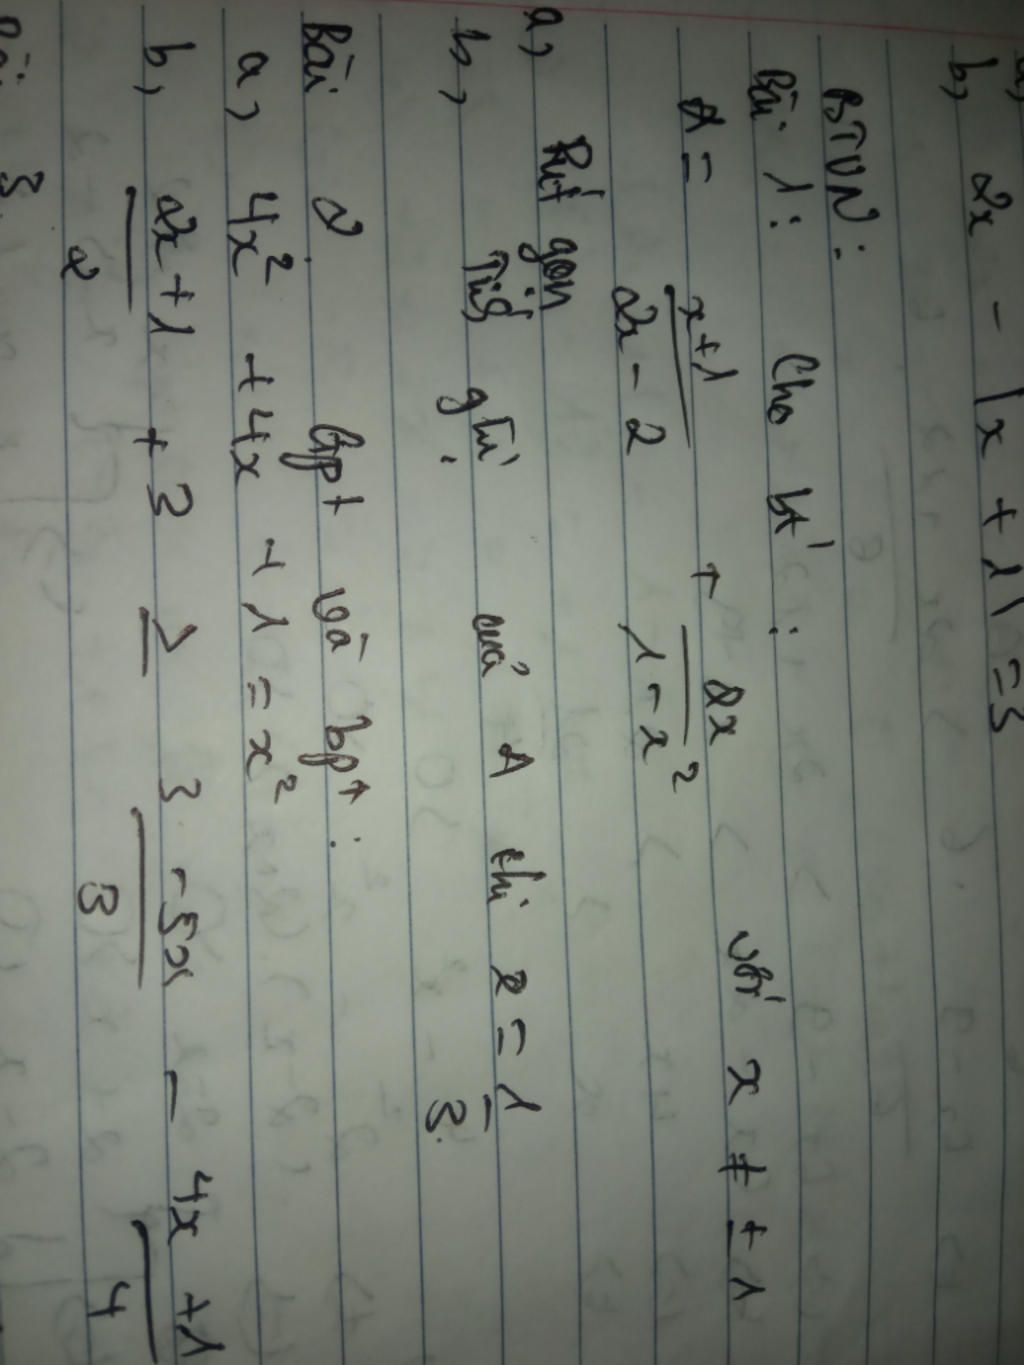 a,
b, 2x - |x + 1| = 3
BTVN:
Bài 1: Cho bt':
A = x+1/2x-2 + 2x/1-x² với x ≠ ±1
a, Rút gọn
b, Tính gtrị của A khi x = 1/3.
Bài 2. Gpt và bpt:
a, 4x² + 4x + 1 = x²
b, 2x+1/2 + 3 ≥ 3-5x/3 - 4x+1/4
Bài 3.